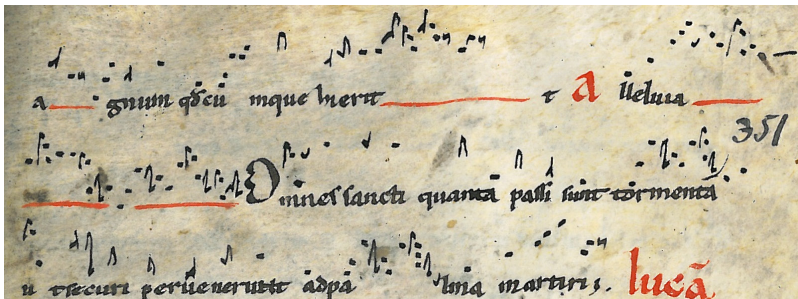 a gnum qđcū mque hierit t A lleluia
351
Omnes sancti quantā passi sunt tormenta
ū tsecuri pervenerunt adpā lma martiris. lucā